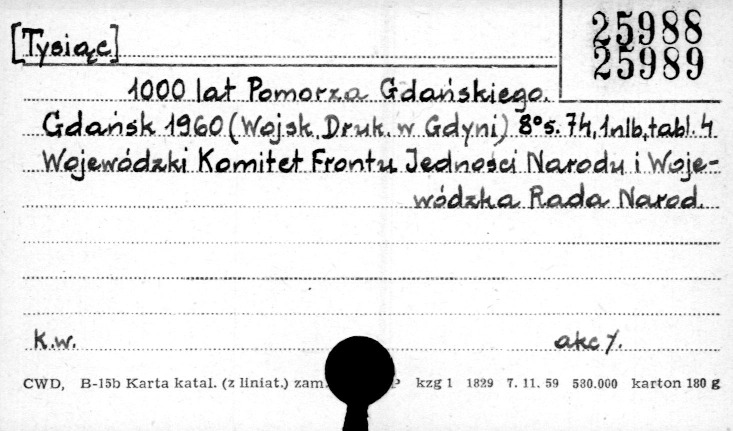 25988
[Tysiąc]
25989
1000 lat Pomorza Gdańskiego.
Gdańsk 1960 (Wojsk. Druk. w Gdyni) 8° s. 74, 1 nlb, tabl. 4
Wojewódzki Komitet Frontu Jedności Narodu i Woje-
wódzka Rada Narod.
K.w. akc%.
CWD, B-15b Karta katal. (z liniat.) zam. P kzg 1 1829 7. 11. 59 530.000 karton 180 g